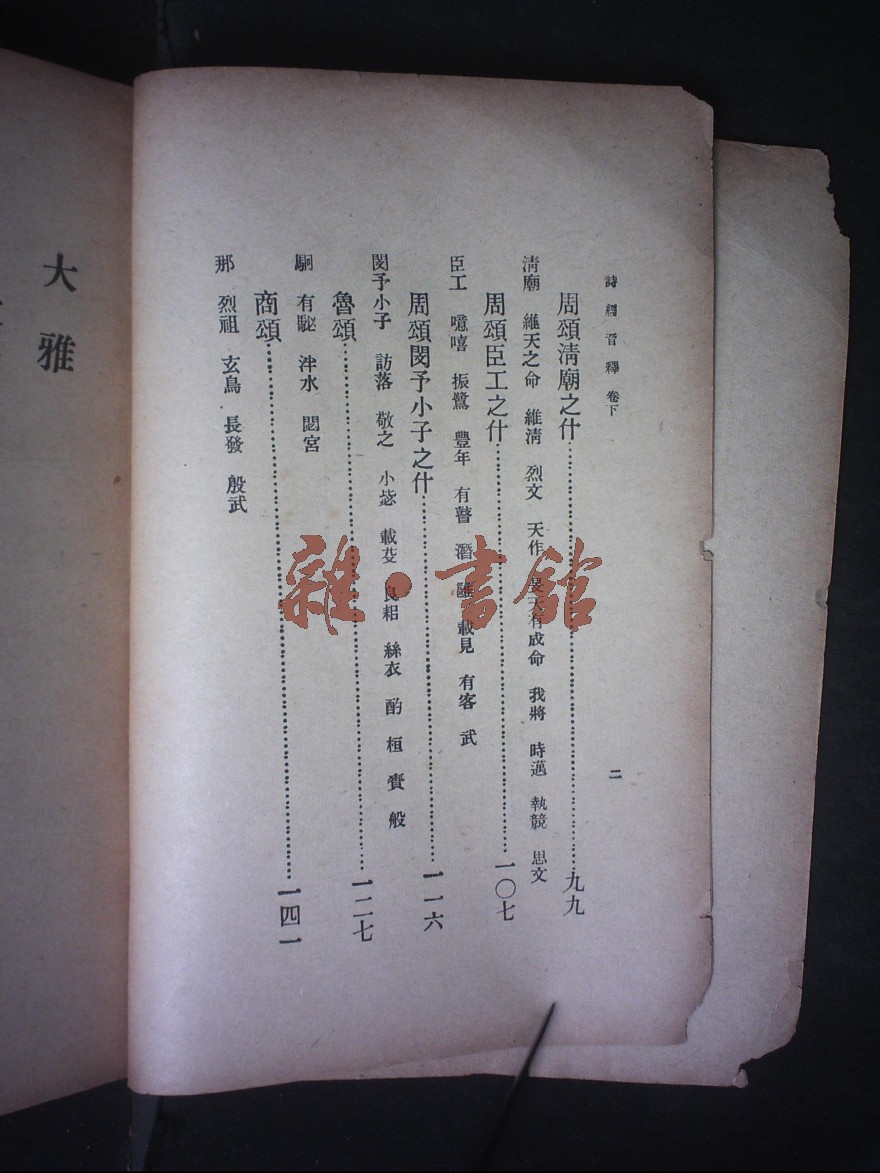 詩經音釋 卷下
二
周頌淸廟之什 九九
淸廟 維天之命 維淸 烈文 天作 昊天有成命 我將 時邁 執競 思文
周頌臣工之什 一〇七
臣工 噫嘻 振鷺 豐年 有瞽 潛 雝 載見 有客 武
周頌閔予小子之什 一一六
閔予小子 訪落 敬之 小毖 載芟 良耜 絲衣 酌 桓 賚 般
魯頌 一二七
駉 有駜 泮水 閟宮
商頌 一四一
那 烈祖 玄鳥 長發 殷武
大雅
雜·書館